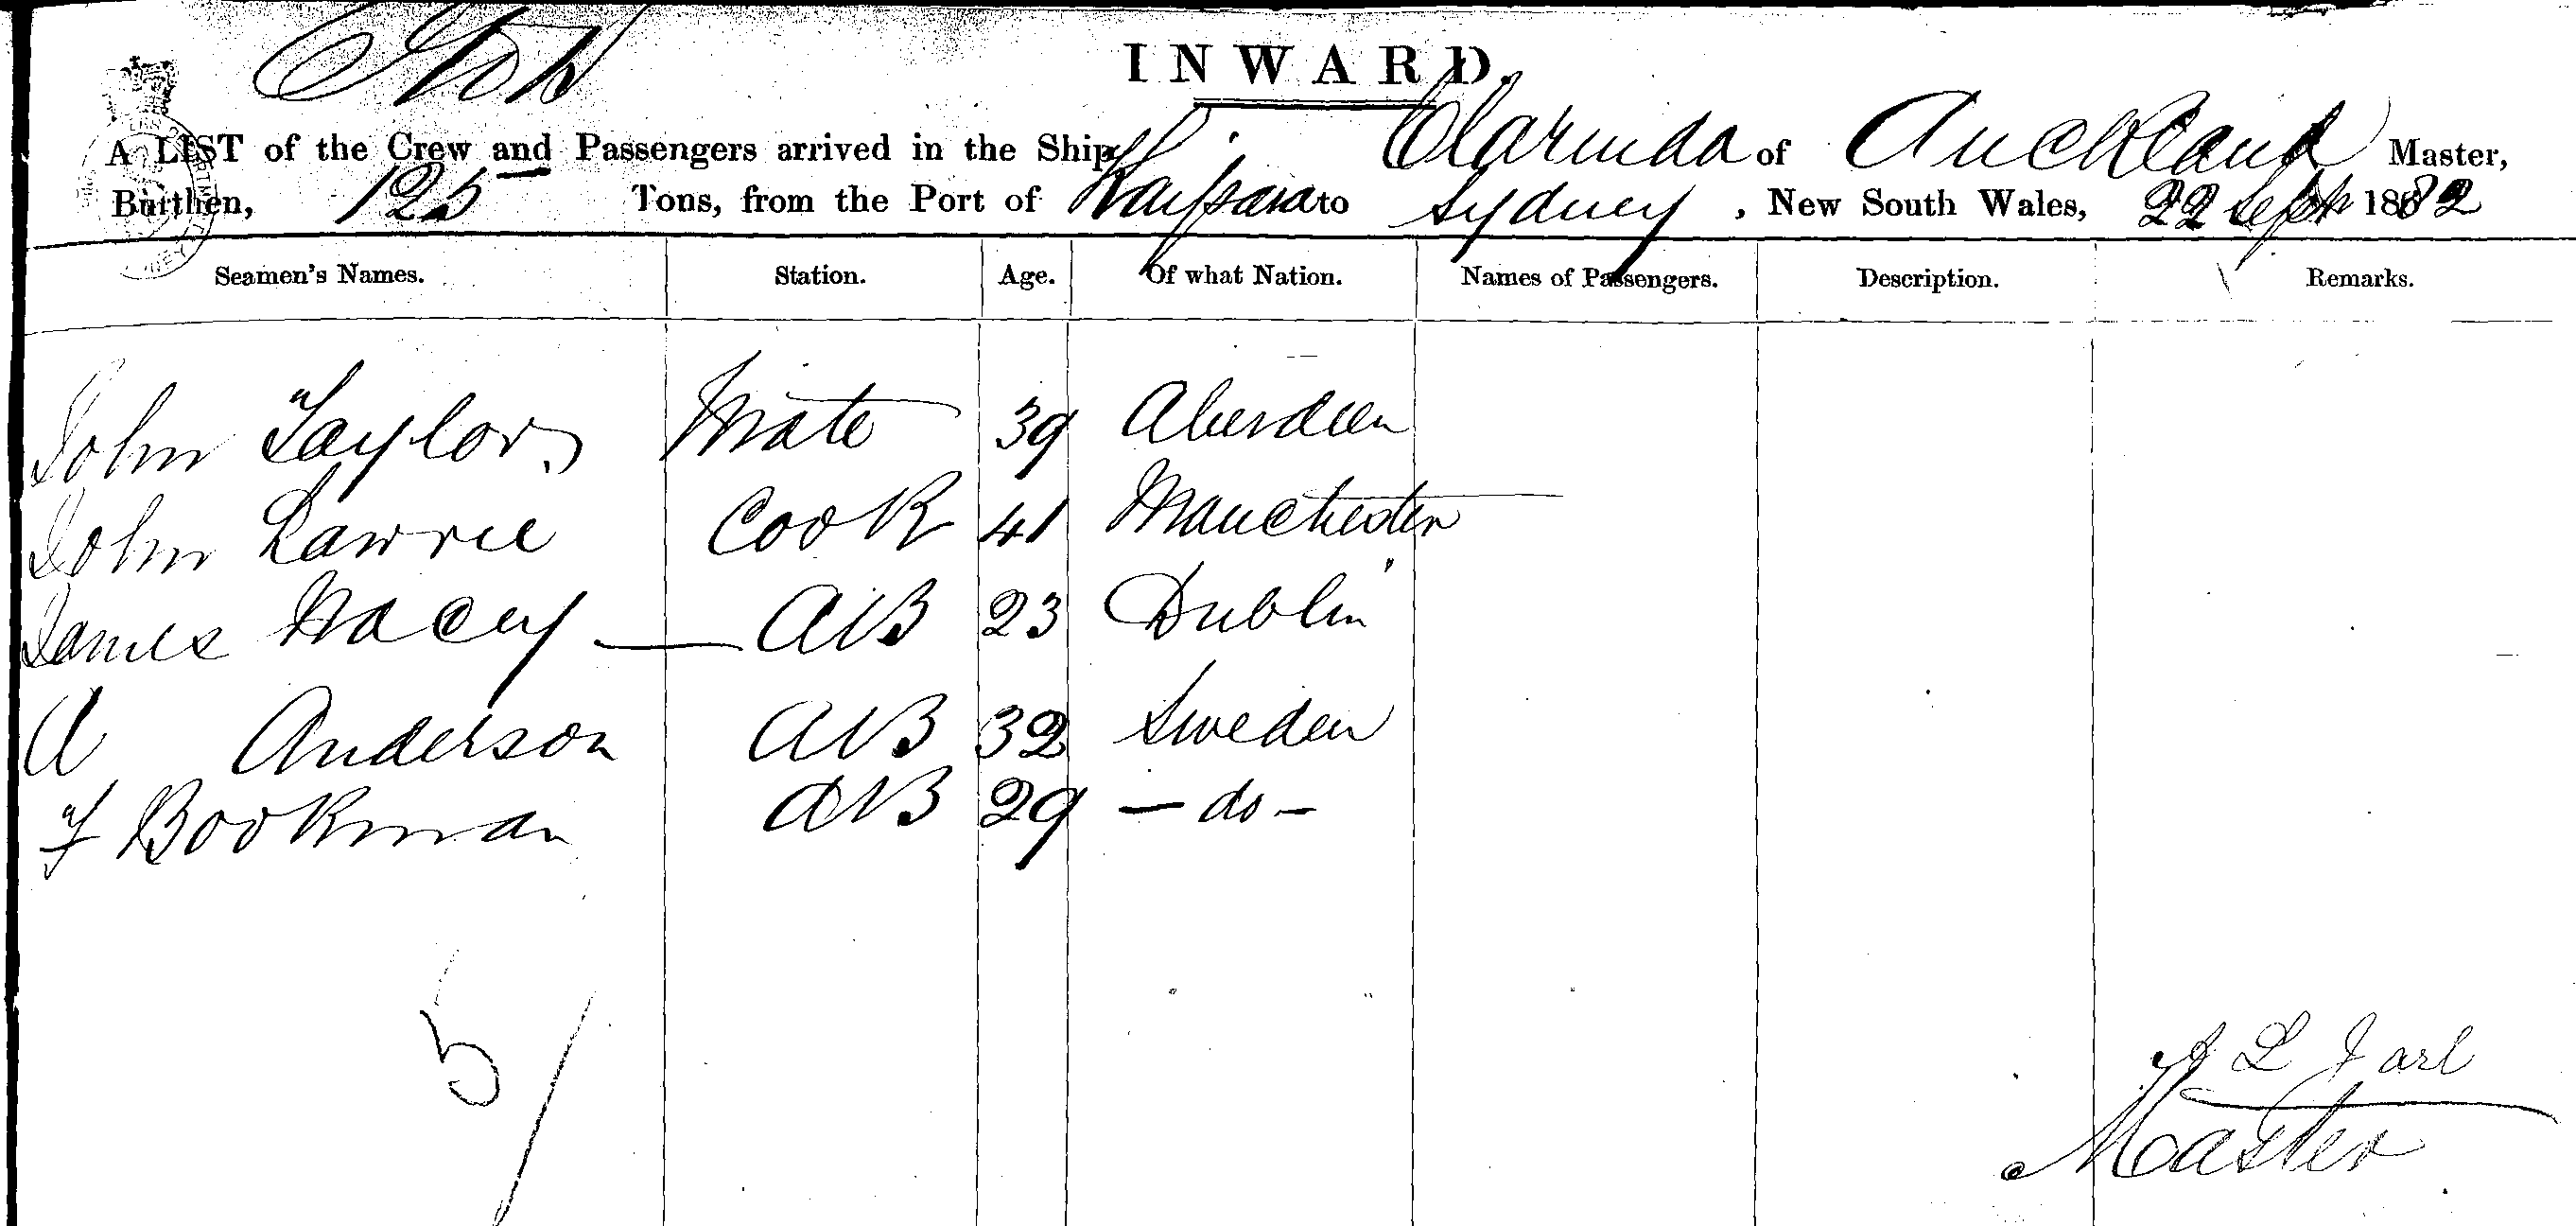 INWARD.
A LIST of the Crew and Passengers arrived in the Ship Clarinda of Auckland Master,
Burthen, 125 Tons, from the Port of Kaipara to Sydney, New South Wales, 22 Sept 1882
Seamen's Names. Station. Age. Of what Nation. Names of Passengers. Description. Remarks.
John Taylor Mate 39 Aberdeen
John Lawrie Cook 41 Manchester
James Macey AB 23 Dublin
A Anderson AB 32 Sweden
F Bookman AB 29 - do -
5/
A L Jarl
Master